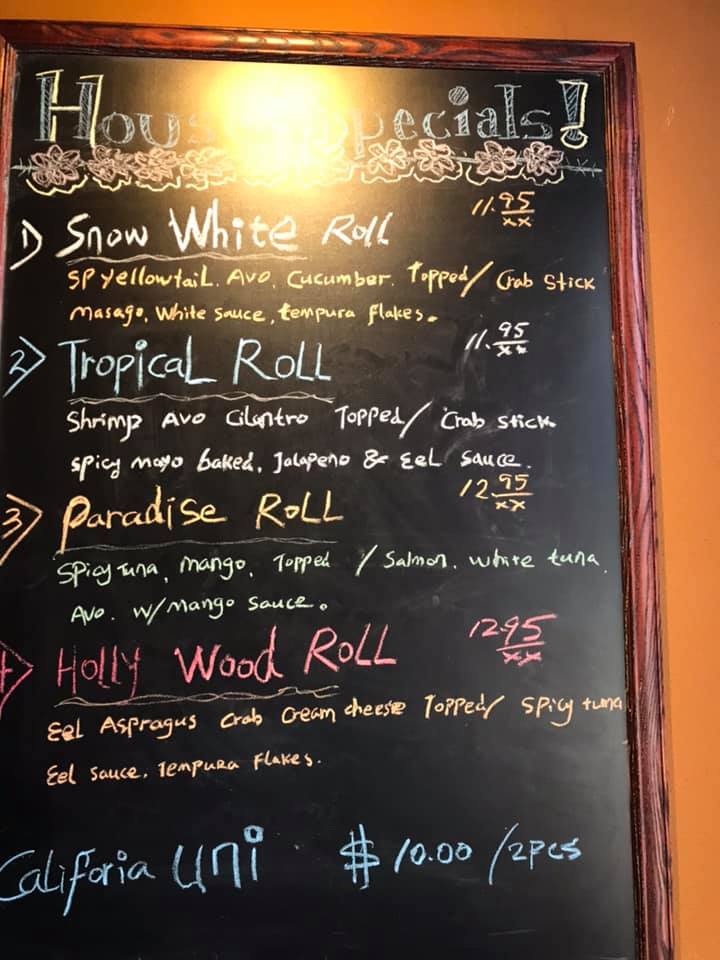 House Specials!
1) Snow White Roll 11.95/xx
SP Yellowtail. Avo. Cucumber. Topped/ Crab Stick
Masago, White Sauce, tempura flakes.
2) Tropical Roll 11.95/xx
Shrimp Avo Cilantro Topped/ Crab stick
spicy mayo baked, Jalapeno & Eel sauce.
3) Paradise Roll 12.95/xx
Spicy tuna, mango, Topped / Salmon. white tuna.
Avo. w/mango sauce.
Holly Wood Roll 12.95/xx
Eel Aspragus Crab Cream cheese Topped/ spicy tuna
Eel sauce. Tempura Flakes.
Califoria uni $10.00 /2pcs